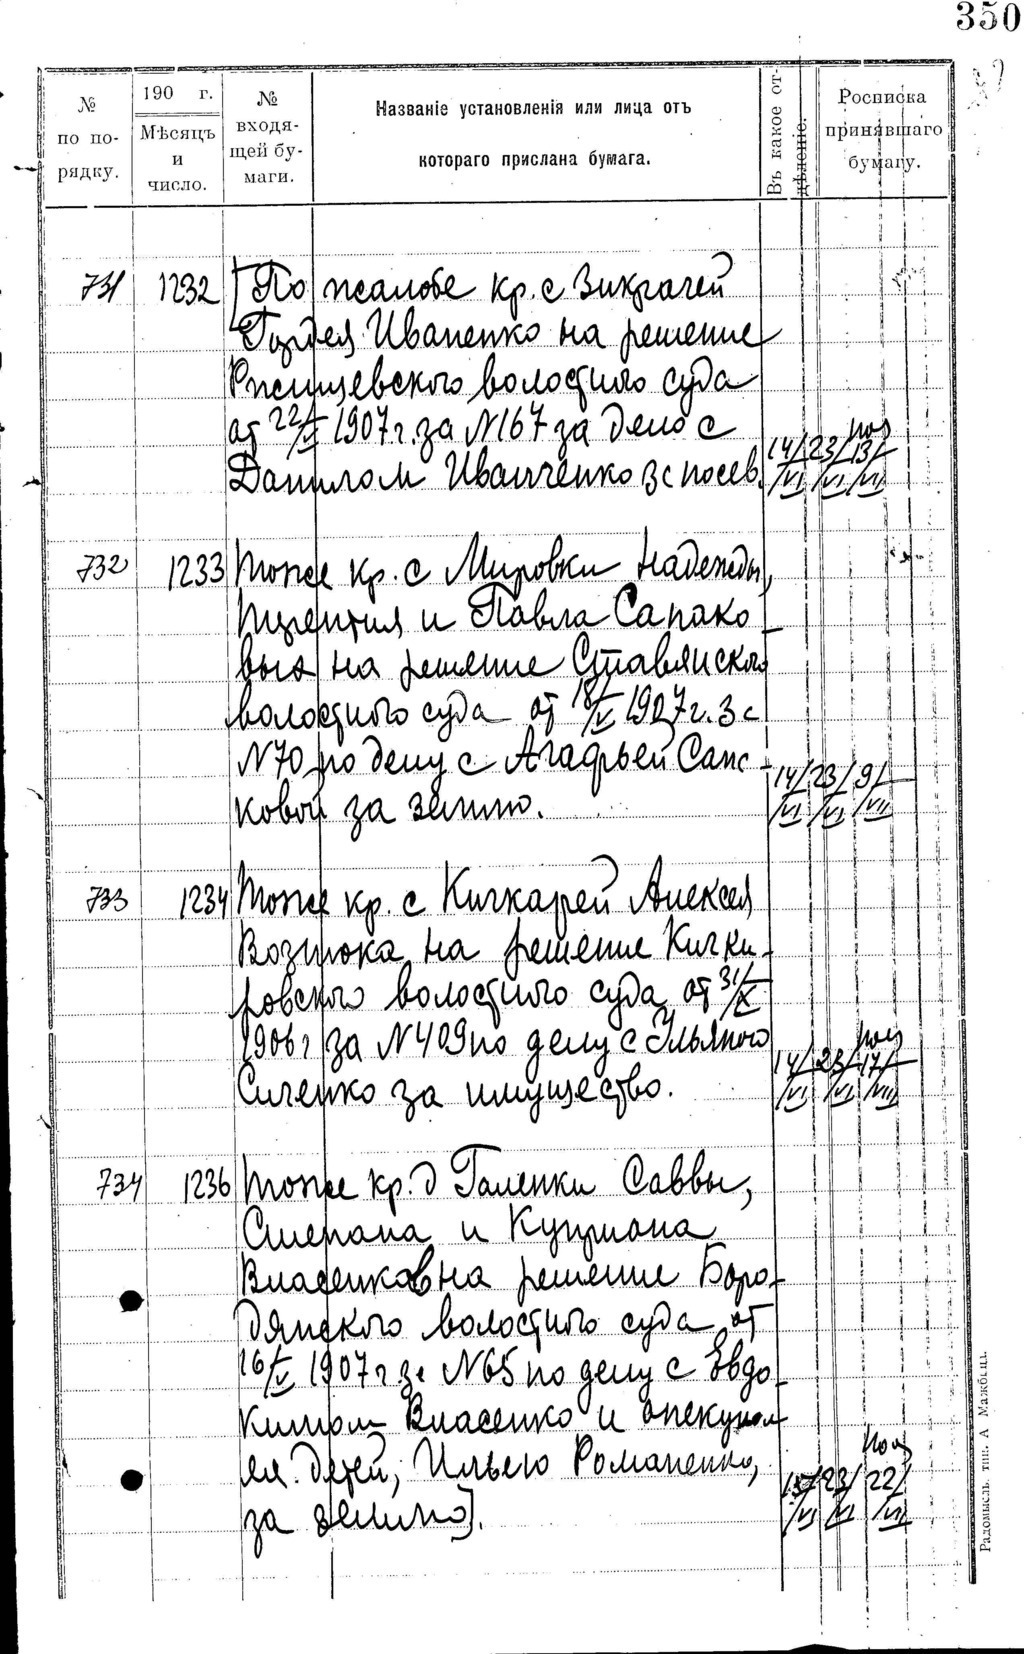 350
№ по порядку.
190 г. Мѣсяцъ и число.
№ входящей бумаги.
Названіе установленія или лица отъ котораго прислана бумага.
Въ какое отдѣленіе.
Росписка принявшаго бумагу.
731 1232 [По жалобе кр. с Зикрачей
Гордея Иваненко на решение
Ржищевского волостного суда
от 22/V 1907 г. за N 167 за дело с
Данилом Иванченко за посев. 14/VI 23/VI 13/VII
732 1233 Тоже кр. с Мировки Надежды,
и Павла Сапако
вых на решение Ставянского
волостного суда от 18/V 1907 г. за
N 70 по делу с Агафьей Сапа-
ковой за землю. 14/VI 23/VI 9/VII
733 1234 Тоже кр. с Кичкарей Алексея
Возинока на решение Кички-
ровского волостного суда от 31/X
1906 г за N 409 по делу с Ульяною
Сиченко за имущество. 14/VI 23/VI 17/VIII
734 1236 Тоже кр. д Галенки Саввы,
Степана и Куприана
Власенков на решение Боро-
дянского волостного суда от
16/V 1907 г за N 65 по делу с Евдо-
кимом Власенко и опекуном
ея детей, Ильею Романенко,
за землю]. 15/VI 23/VI 22/VII
Радомысль. тип. А Мажбиц.